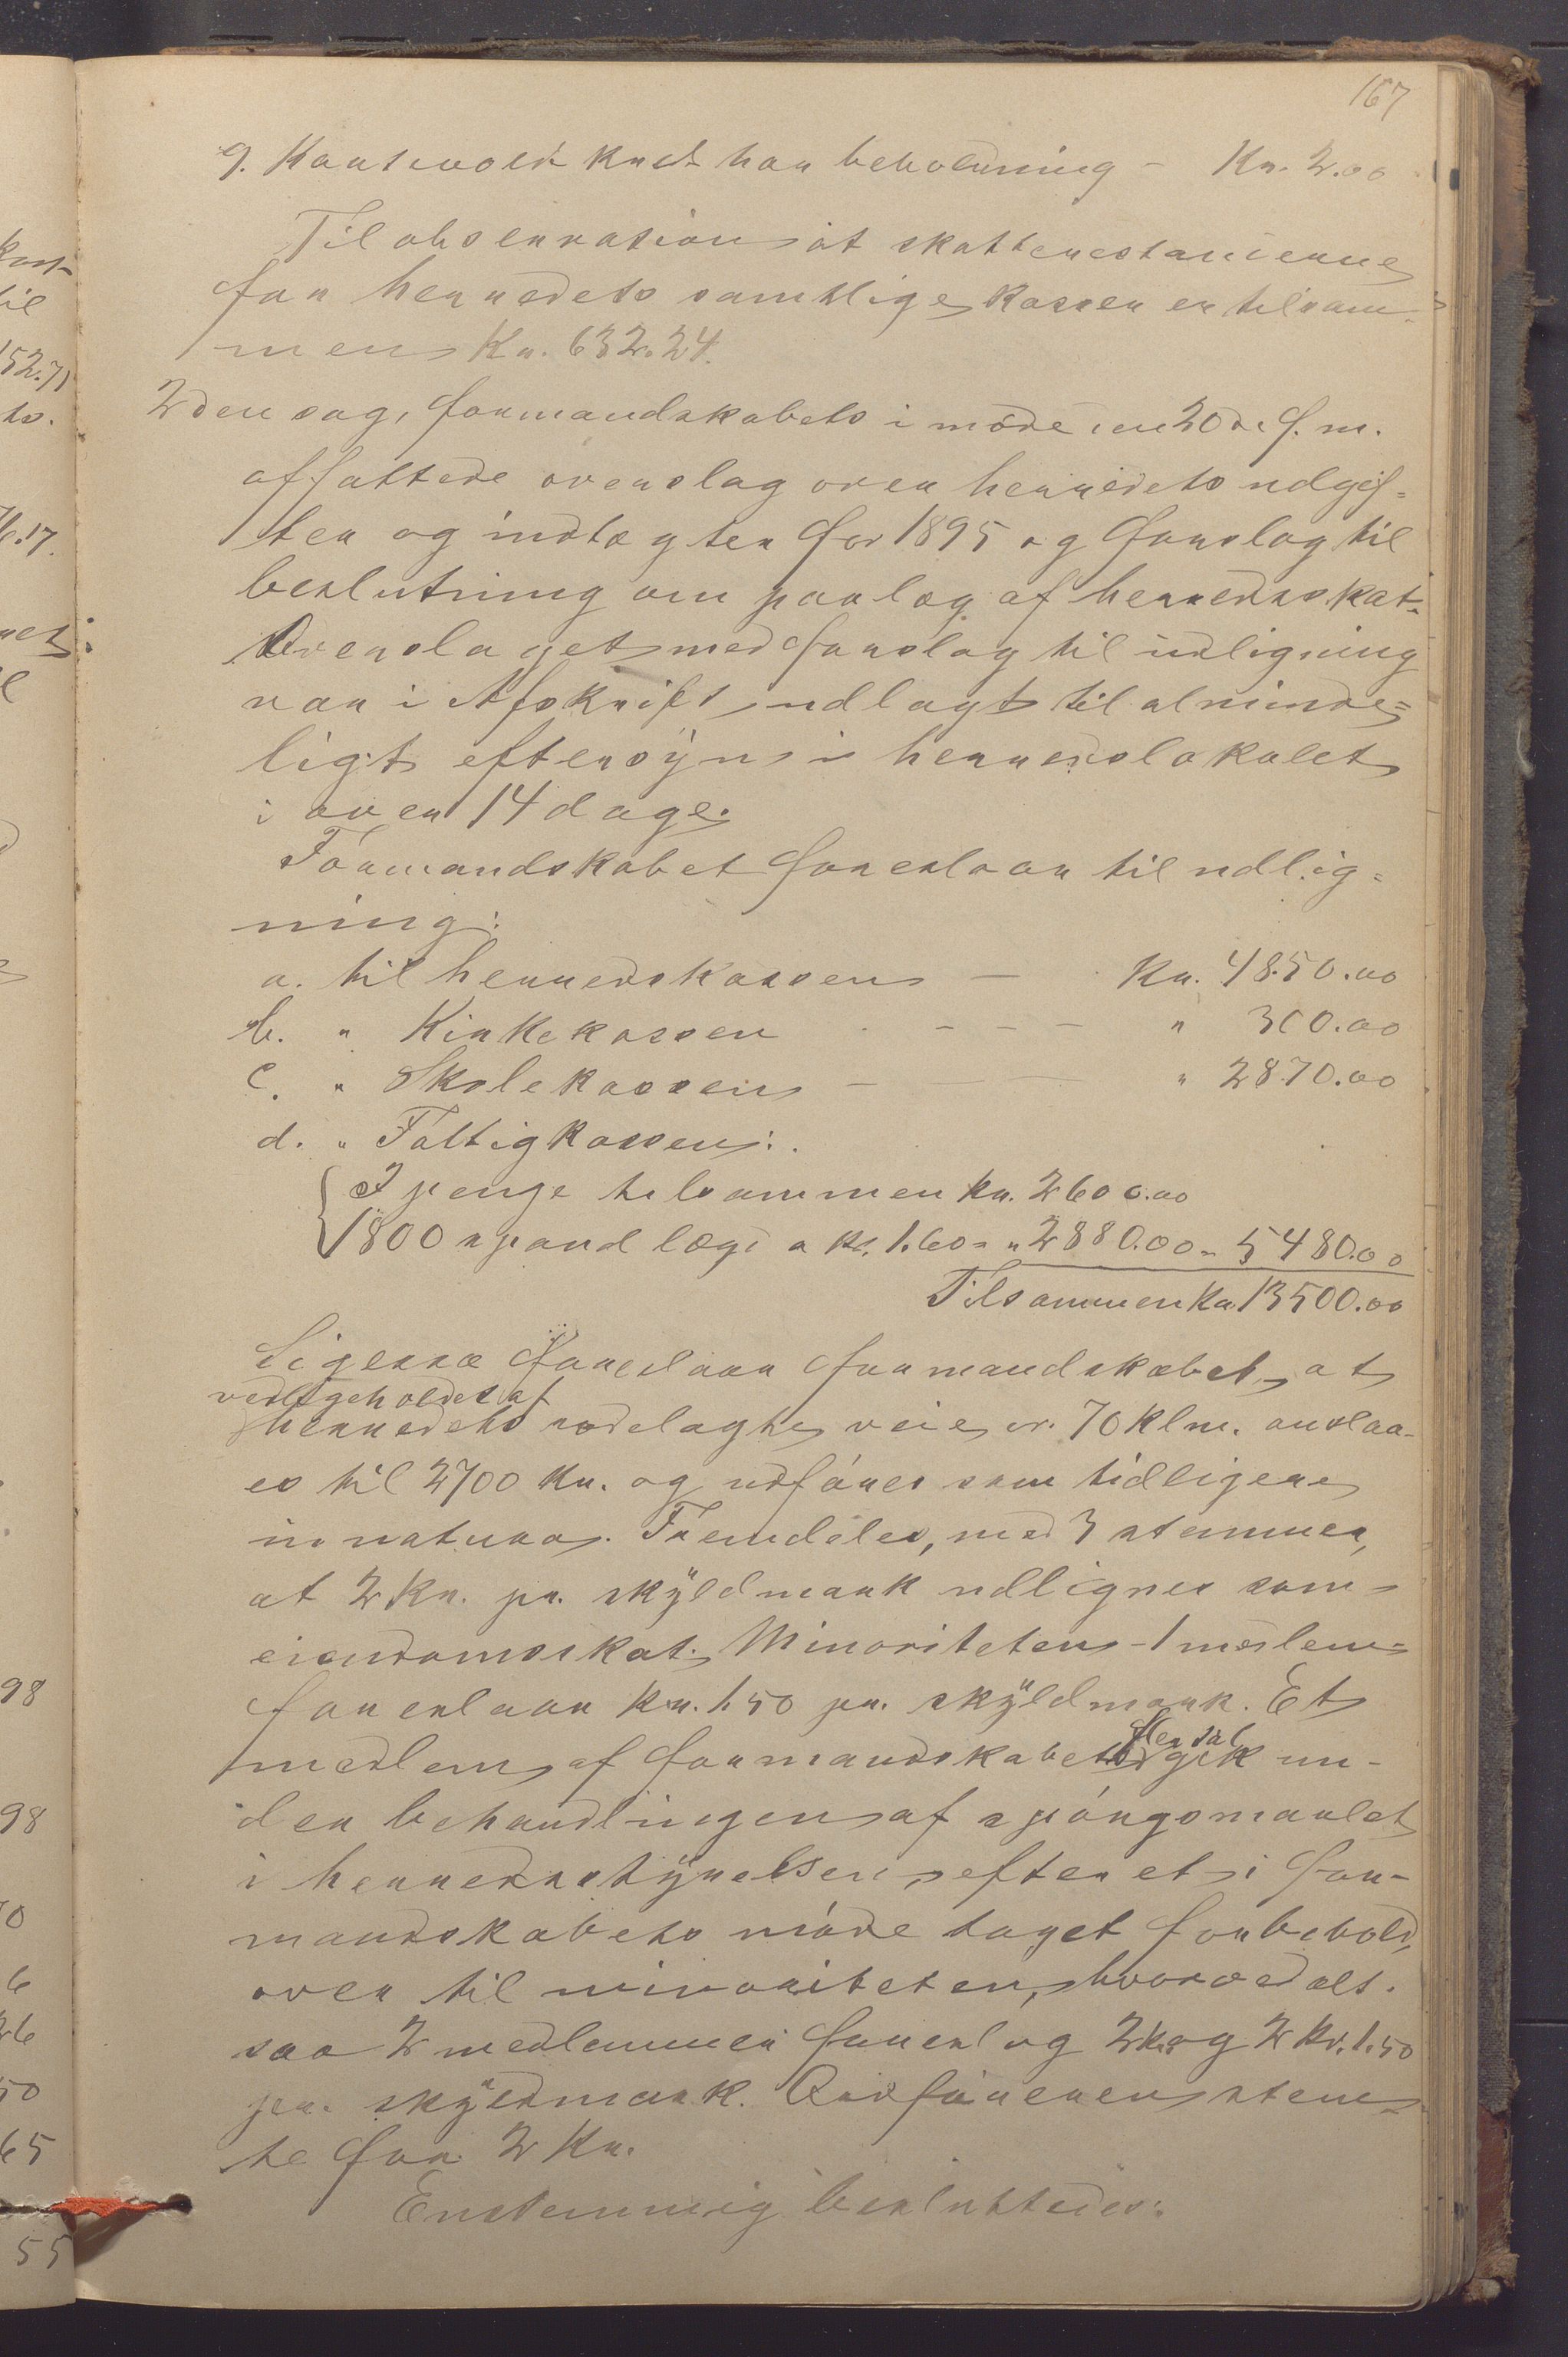 167
9. Kartevold Knut har beholdning - Kr. 2.00
Til observation at skatterestancerne
for herredets samtlige kasser er tilsam-
men Kr. 632.24.
2den sag, formandskabets i møde den 20de f. m.
affattede overslag over herredets udgif-
ter og indtægter for 1895 og forslag til
beslutning om paalæg af herredsskat.
Overslaget med forslag til udligning
var i Afskrift udlagt til alminde=
ligt eftersyn i herredslokalet
i over 14 dage.
Formandskabet foreslaar til udlig-
ning:
a. til herredskassen — Kr. 4850.00
b. " Kirkekassen - - - - " 300.00
c. " Skolekassen — — " 2870.00
d. " Fattigkassen:
I penge tilsammen Kr. 2600.00
1800 spand lægd a Kr. 1.60 = " 2880.00 = 5480.00
Tilsammen Kr. 13500.00
Ligesaa foreslaar formandskabet, at
vedligeholdes af
herredets rodelagte veie cr. 70 klm. anslaa-
es til 2700 Kr. og udføres som tidligere
in natura. Fremdeles, med 3 stemmer,
at 2 Kr. pr. skyldmark udlignes som
eiendomsskat. Minoriteten - 1 medlem -
foreslaar Kr. 1.50 pr. skyldmark. Et
medlem af formandskabets gik un-
der behandlingen af spørgsmaalet
i herredsstyrelsen, efter et i for-
mandskabets møde taget forbehold,
over til minoriteten, hvorved alt-
saa 2 medlemmer foreslog 2 Kr. og 2 Kr. 1.50
pr. skyldmark. Ordføreren stem-
te for 2 Kr.
Enstemmig besluttedes: